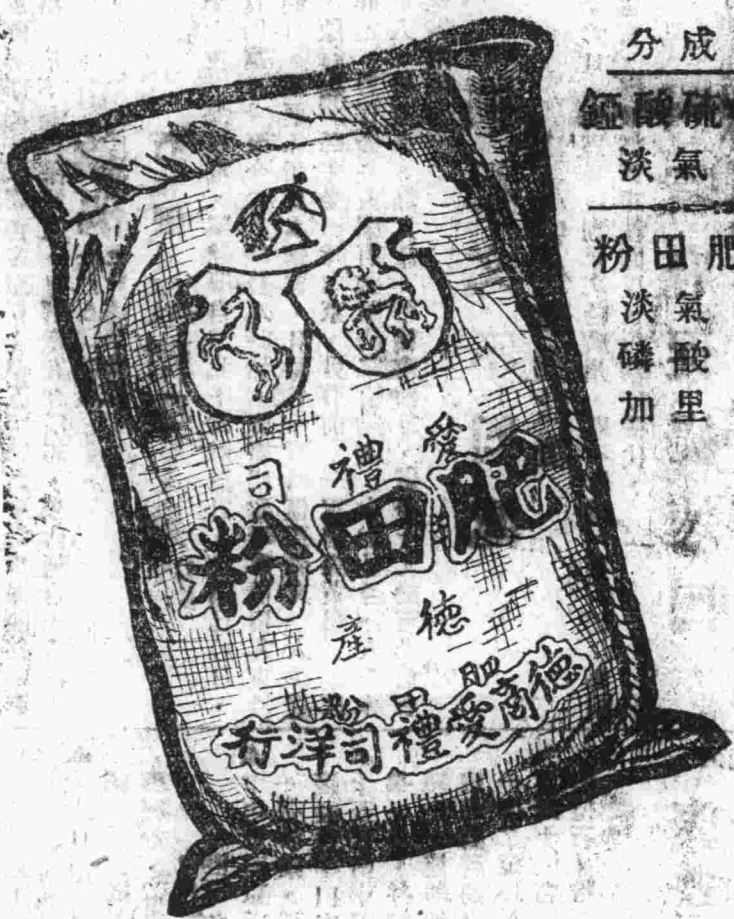 成分
硫酸錏
淡氣
肥田粉
淡氣
磷酸
加里
愛禮司
肥田粉
德產
肥田粉
德商愛禮司洋行